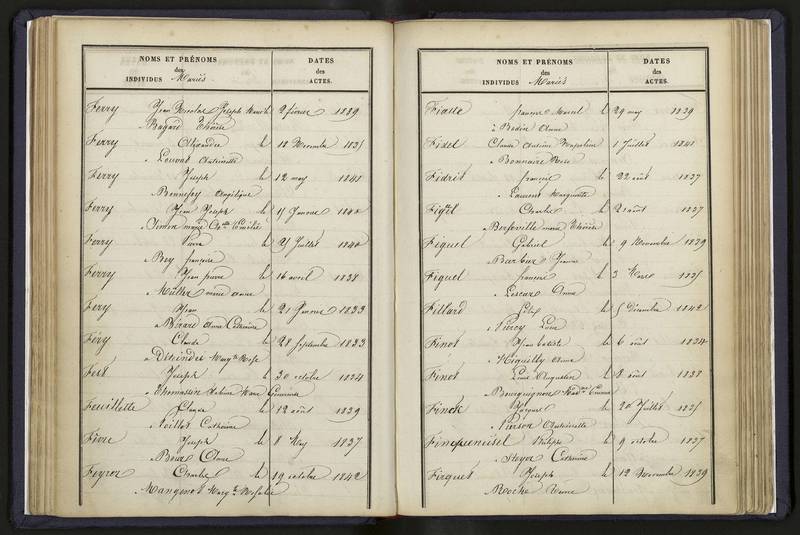 NOMS ET PRÉNOMS
des
INDIVIDUS Mariés
DATES
des
ACTES.
Ferry Jean Nicolas Joseph le 2 février 1839
à Bagard Thérèse
Ferry Alexandre le 18 Novembre 1835
à Louvot Antoinette
Ferry Joseph le 12 may 1841
à Bonnefoy Angélique
Ferry Jean Joseph le 15 Janvier 1840
à Simon marie
Ferry Pierre le 21 Juillet 1840
à Rey françoise
Ferry Jean pierre le 16 avril 1838
à Müller marie anne
Fery Jean le 21 Janvier 1833
à Bérard Anne Catherine
Féry Claude le 28 Septembre 1833
à Marg.te Rose
Joseph le 30 octobre 1834
à Thomassin
Feuillette Claude le 12 août 1839
à Noillot Catherine
Fèvre Joseph le 8 May 1837
à Anne
Feyrot Charles le 19 octobre 1842
à Mangenot Marg.te Rosalie
NOMS ET PRÉNOMS
des
INDIVIDUS Mariés
DATES
des
ACTES.
Fiatte françois Marcel le 29 may 1839
à Bodin Anne
Fidel Claude Antoine Napoléon le 1 Juillet 1841
à Bonnaire Rose
françois le 22 août 1837
à Laurent Marguerite
Charles le 21 août 1837
à marie Thérèse
Fiquel Gabriel le 9 Novembre 1839
à Barbier Jeanne
Fiquel françois le 3 Mars 1835
à Lescure Anne
Fillard le 5 Décembre 1842
à Louise
Finot Jean batiste le 6 août 1834
à Anne
Finot Louis Augustin le 8 août 1838
à Bourguignon
Finck Jacques le 20 Juillet 1835
à Pierson Antoinette
Philippe le 9 octobre 1837
à Catherine
Firquet Joseph le 12 Novembre 1839
à Roche